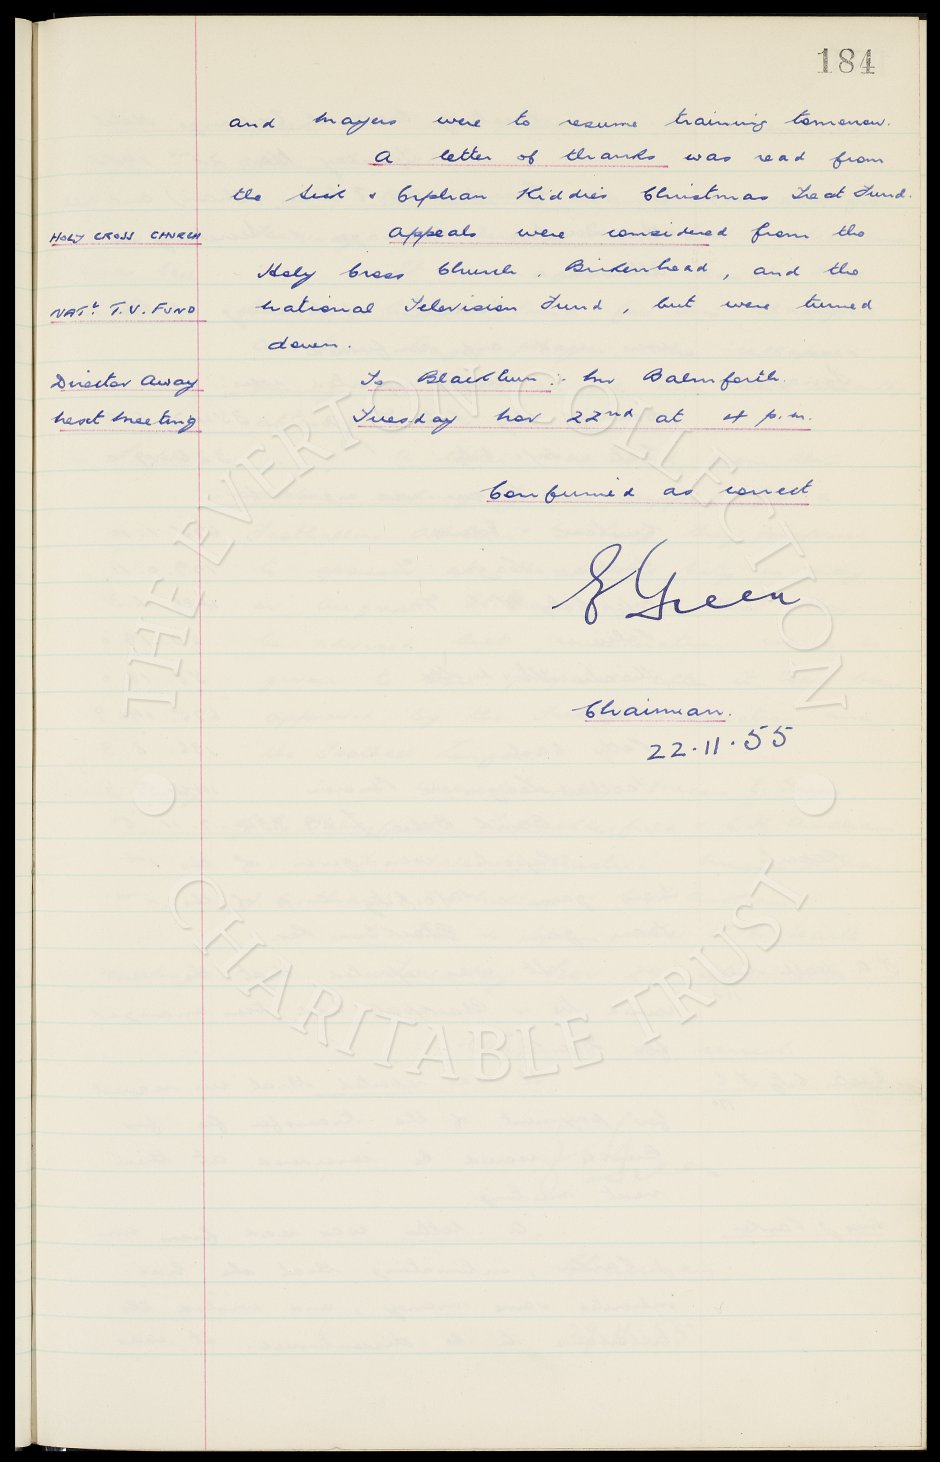 184
and Mayers were to resume training tomorrow.
A letter of thanks was read from
the Sick & Orphan Kiddies Christmas Treat Fund.
HOLY CROSS CHURCH
Appeals were considered from the
Holy Cross Church, Birkenhead, and the
NATL. T.V. FUND
National Television Fund, but were turned
down.
Director Away
To Blackburn:- Mr Balmforth.
Next Meeting
Tuesday Nov 22nd at 4 p.m.
Confirmed as correct
E Green
Chairman.
22.11.55
THE EVERTON COLLECTION
CHARITABLE TRUST